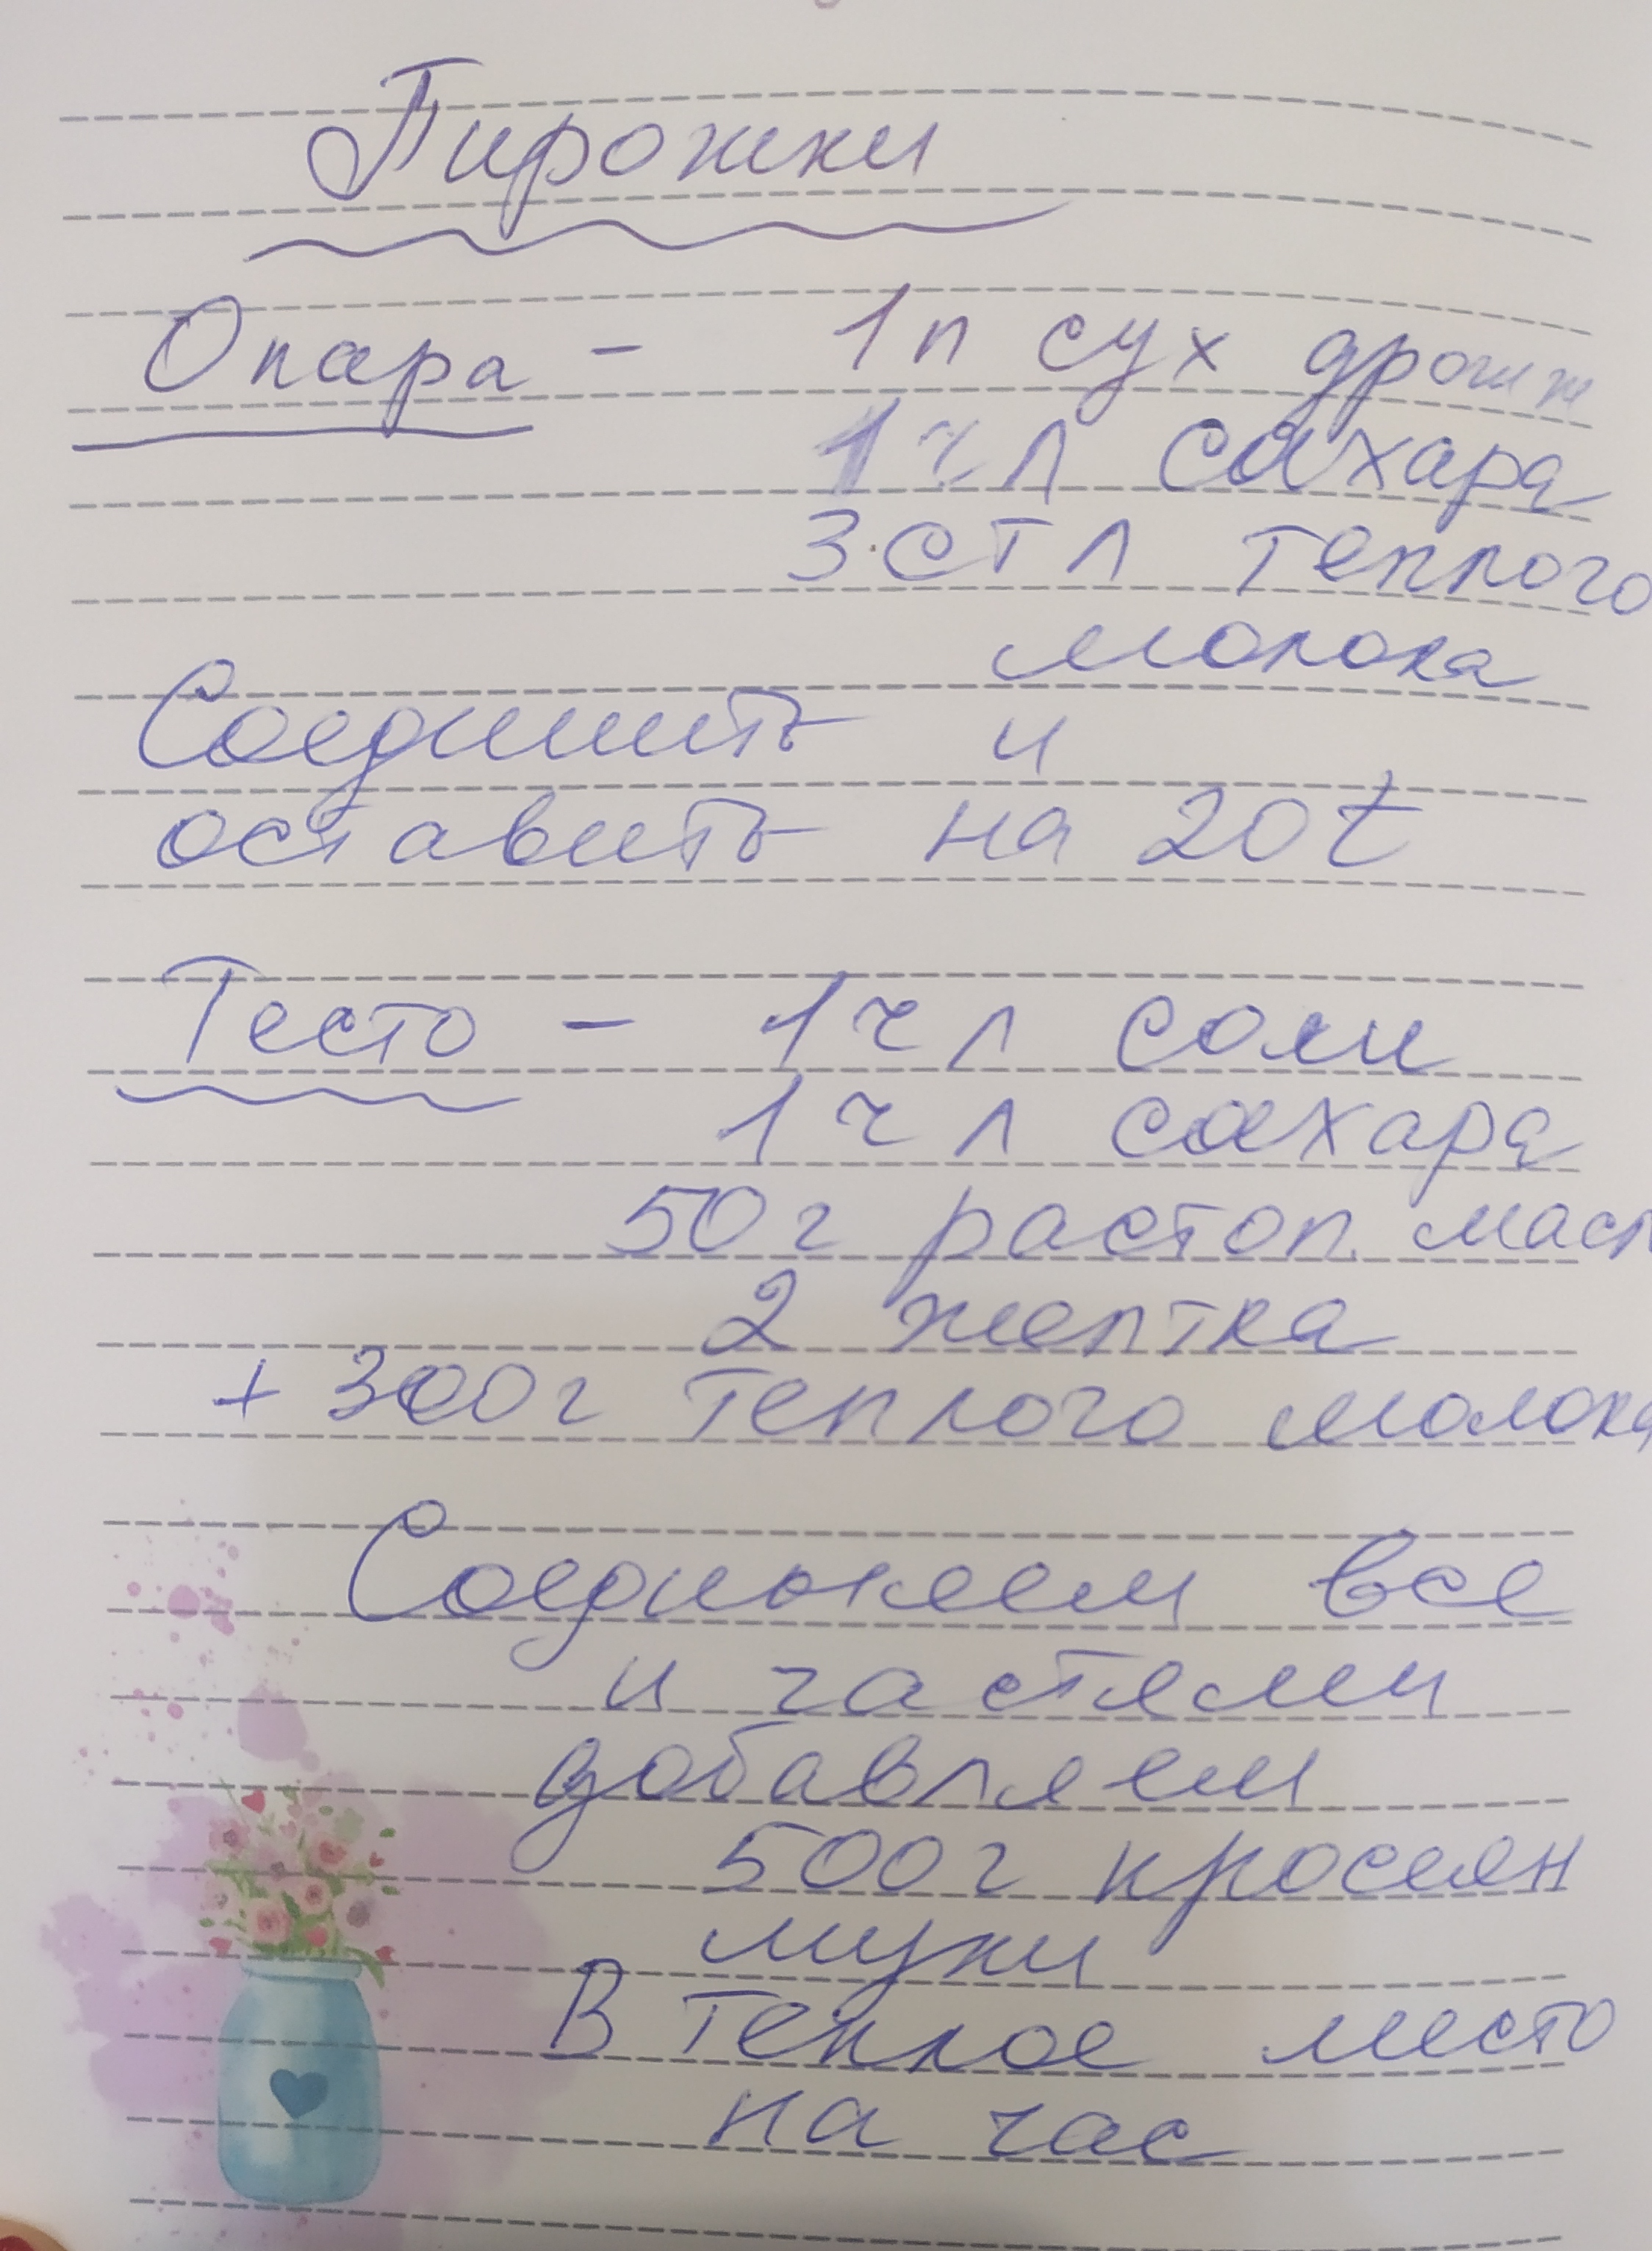 Пирожки
Опара - 1п сух дрожж
1 ч л сахара
3 ст л теплого
молока
Соединить и
оставить на 20 t
Тесто - 1 ч л соли
1 ч л сахара
50 г растоп масл
2 желтка
+ 300 г теплого молока
Соединяем все
и частями
добавляем
500 г просеян
муки
В теплое место
на час